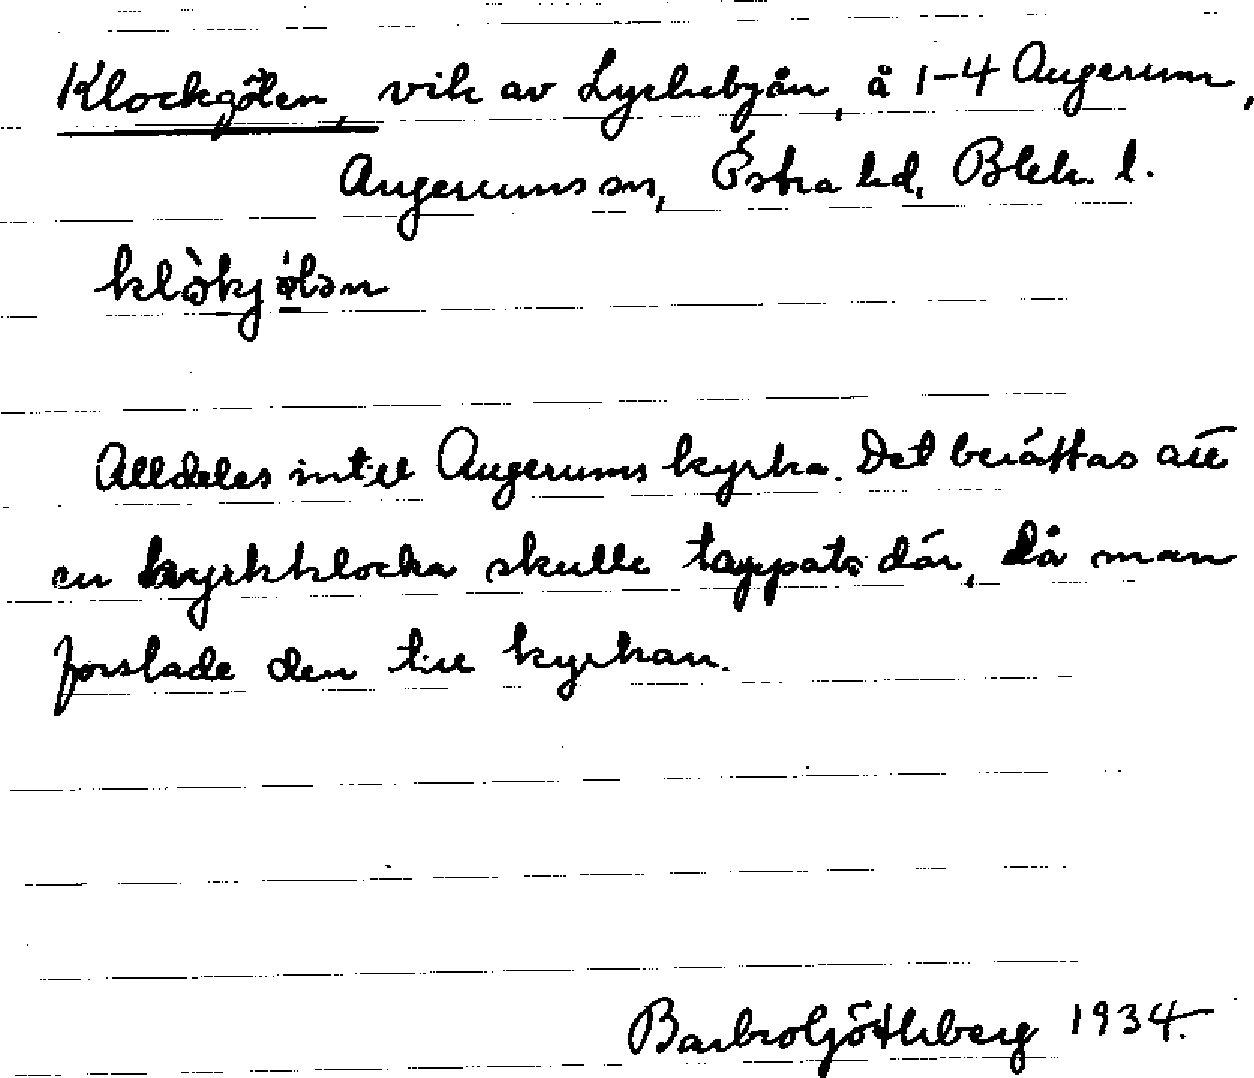 Klockgölen, vik av Lyckebyån, å 1-4 Augerum,
Augerums sn, Östra hd, Blek. l.
Alldeles intill Augerums kyrka. Det berättas att
en kyrkklocka skulle tappats där, då man
forslade den till kyrkan.
Barbro Göthberg 1934.